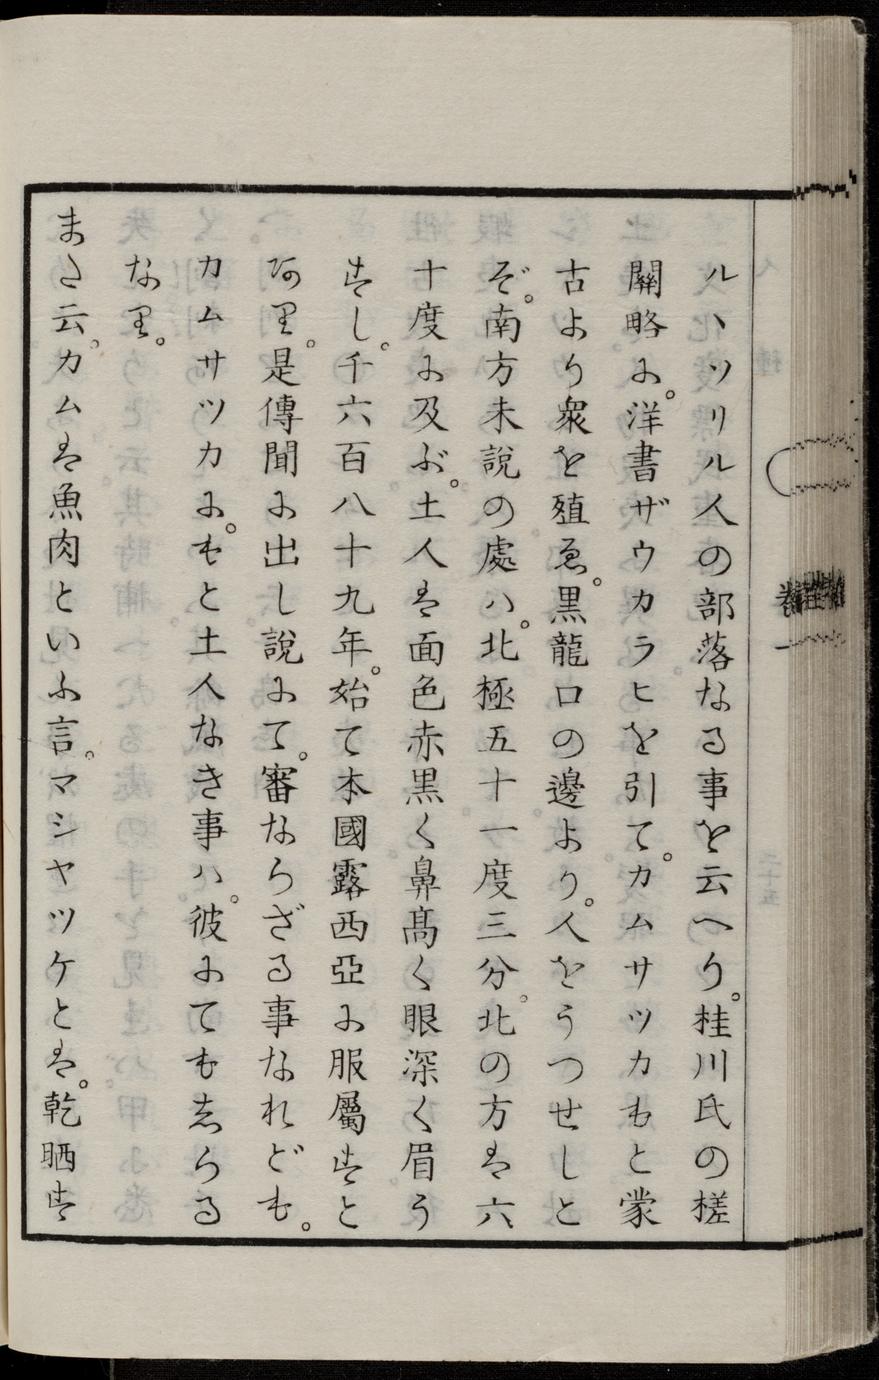 ルヽツリル人の部落なる事を云へり。桂川氏の槎
闢略に。洋書ザウカラヒを引て。カムサツカもと蒙
古より衆を殖ゑ。黒龍口の邊より。人をうつせしと
ぞ。南方未説の處ハ。北極五十一度三分。北の方は六
十度に及ぶ。土人は面色赤黒く鼻高く眼深く眉う
すし。千六百八十九年。始て本國露西亞に服屬すと
なり。是傳聞に出し説にて。審ならざる事なれども。
カムサツカに。もと土人なき事ハ。彼にてもしらる
なり。
また云。カムは魚肉といふ言。マシヤツケとは。乾晒す
卷一